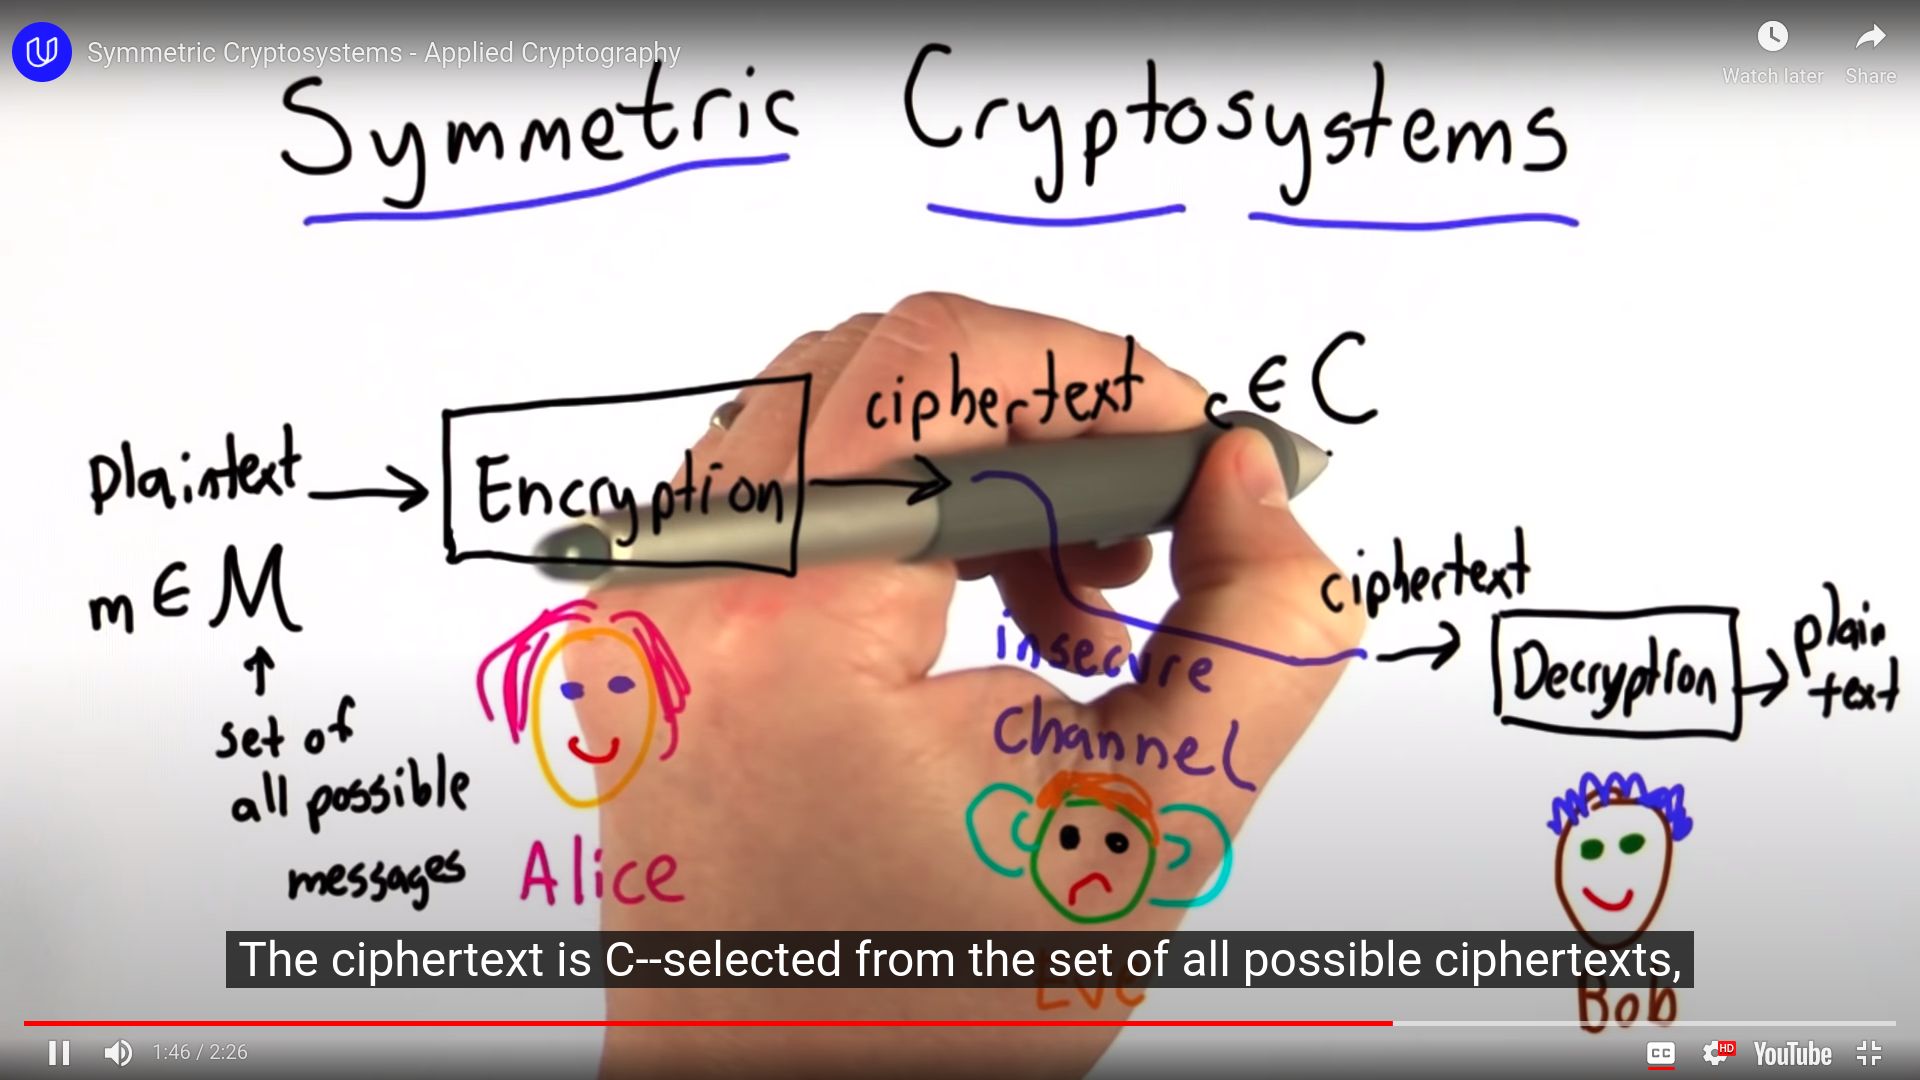 Symmetric Cryptosystems - Applied Cryptography
Watch later
Share
Symmetric Cryptosystems
ciphertext c ∈ C
Plaintext
Encryption
m ∈ M
set of
all possible
messages
insecure
channel
ciphertext
Decryption
plain
text
Alice
Eve
Bob
The ciphertext is C--selected from the set of all possible ciphertexts,
1:46 / 2:26
CC
HD
YouTube